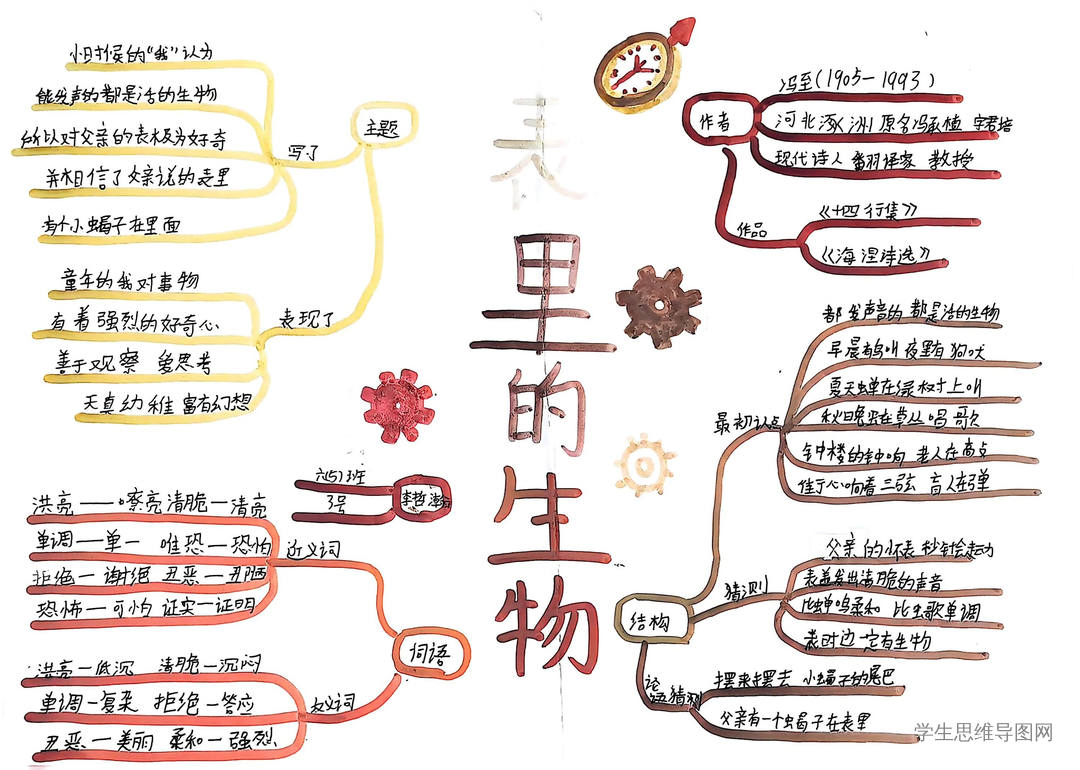 表里的生物
主题
写了
小时候的“我”认为
能发声的都是活的生物
所以对父亲的表极为好奇
并相信了父亲说的表里
有个小蝎子在里面
表现了
童年的我对事物
有着强烈的好奇心
善于观察 爱思考
天真幼稚 富有幻想
六(5)班
3号
词语
近义词
洪亮——嘹亮 清脆—清亮
单调——单一 唯恐—恐怕
拒绝—谢绝 丑恶—丑陋
恐怖—可怕 证实—证明
反义词
洪亮—低沉 清脆—沉闷
单调—复杂 拒绝—答应
丑恶—美丽 柔和—强烈
作者
冯至(1905-1993)
河北涿州 原名冯承植 字君培
现代诗人 翻译家 教授
作品
《十四行集》
《海涅诗选》
结构
最初认点
都发声音的都是活的生物
早晨有鸟叫 夜里有狗吠
夏天虫蝉在绿树上叫
秋日晚虫在草丛唱歌
钟楼的钟响 老人在高点
三弦 盲人在弹
猜测
父亲的小表 秒针会走动
表盖发出清脆的声音
比蝉鸣柔和 比虫歌单调
表时边一定有生物
论语猜测
摆来摆去 小蝎子的尾巴
父亲有一个虫蝎子在表里
学生思维导图网